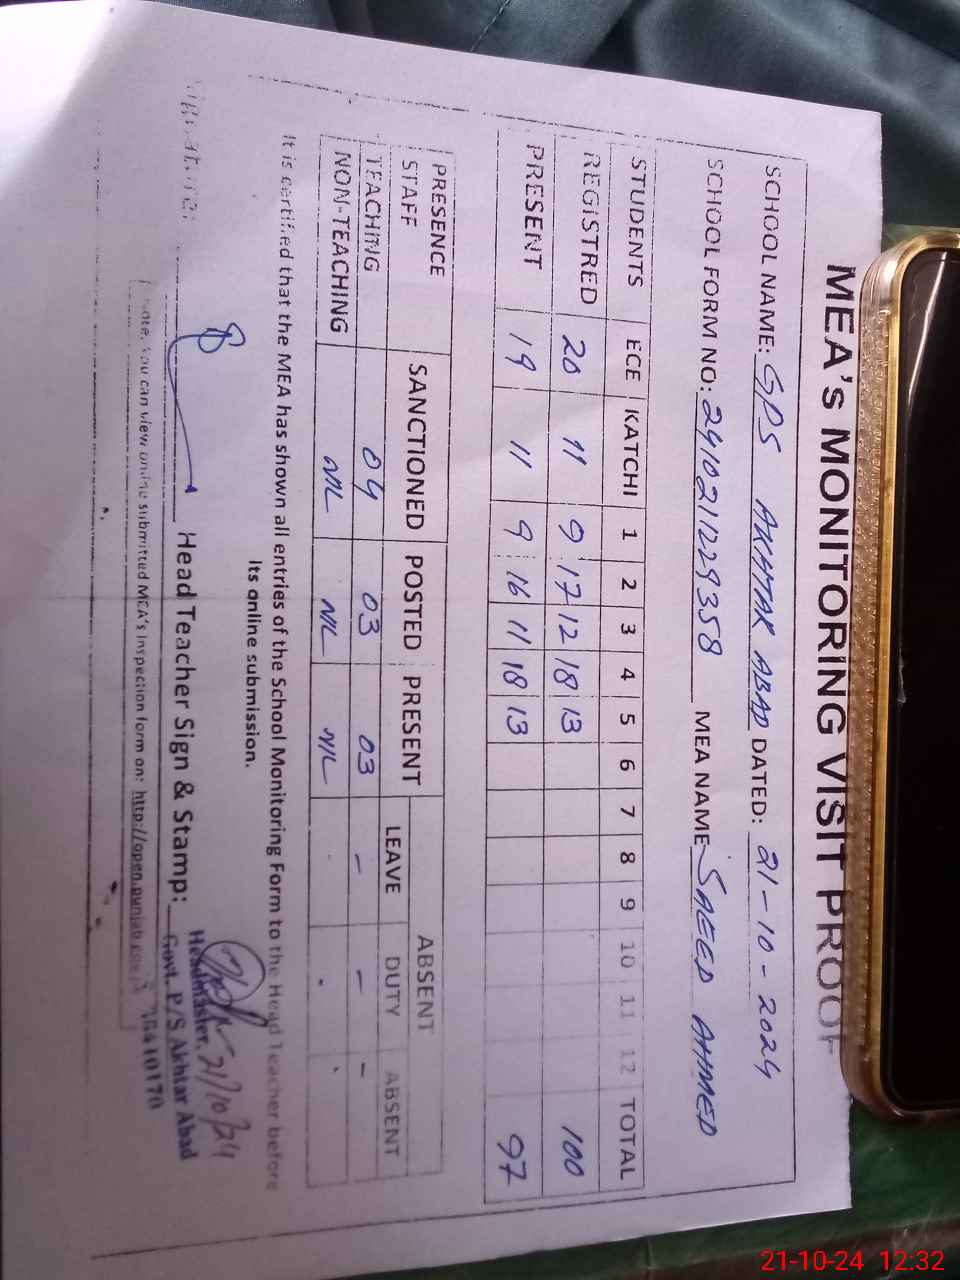 MEA's MONITORING VISIT PROOF
SCHOOL NAME: GPS AKHTAR ABAD DATED: 21-10-2024
SCHOOL FORM NO: 2410211229358 MEA NAME SAEED AHMED
STUDENTS ECE KATCHI 1 2 3 4 5 6 7 8 9 10 11 12 TOTAL
REGISTRED 20 11 9 17 12 18 13 100
PRESENT 19 11 9 16 11 18 13 97
PRESENCE STAFF SANCTIONED POSTED PRESENT ABSENT
LEAVE DUTY ABSENT
TEACHING 04 03 03 - - -
NON-TEACHING NIL NIL NIL
It is certified that the MEA has shown all entries of the School Monitoring Form to the Head Teacher before
its online submission.
Signature: Head Teacher Sign & Stamp:
21/10/24
Headmaster
Govt. P/S Akhtar Abad
Note: You can view online submitted MEA's Inspection form on: http://open.punjab.gov.pk
21-10-24 12:32